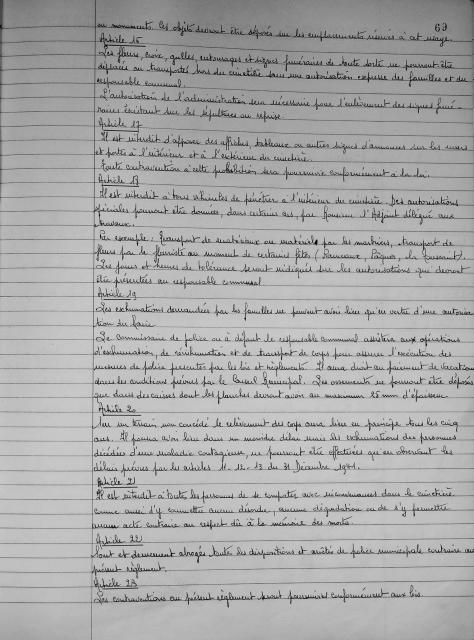 69
ou monuments. Ces objets devront être déposés sur les emplacements réservés à cet usage.
Article 16
Les fleurs, croix, grilles, entourages et signes funéraires de toute sorte ne pourront être
déplacés ou transportés hors du cimetière sans une autorisation expresse des familles et du
responsable communal.
L'autorisation de l'administration sera nécessaire pour l'enlèvement des signes funé-
raires existant sur les sépultures au reprise.
Article 17
Il est interdit d'apposer des affiches, tableaux ou autres signes d'annonces sur les murs
et portes à l'intérieur et à l'extérieur du cimetière.
Toute contravention à cette prohibition sera poursuivie conformément à la loi.
Article 18
Il est interdit à tous véhicules de pénétrer à l'intérieur du cimetière. Des autorisations
spéciales pourront être données, dans certains cas, par Monsieur l'Adjoint délégué aux
travaux.
Par exemple : Transport de matériaux ou matériels par les marbriers, transport de
fleurs par le fleuriste au moment de certaines fêtes (Rameaux, Pâques, la Toussaint).
Les jours et heures de tolérance seront indiqués sur les autorisations qui devront
être présentées au responsable communal.
Article 19
Les exhumations demandées par les familles ne peuvent avoir lieu qu'en vertu d'une autorisa-
tion du Maire
Le commissaire de police ou à défaut le responsable communal assistera aux opérations
d'exhumation, de réinhumation et de transport de corps pour assurer l'exécution des
mesures de police prescrites par les lois et règlements. Il aura droit au paiement de vacations
dans les conditions prévues par le Conseil Municipal. Les ossements ne pourront être déposés
que dans des caisses dont les planches devront avoir au maximum 25 mm d'épaisseur.
Article 20
Sur un terrain non concédé le relèvement des corps aura lieu en principe tous les cinq
ans. Il pourra avoir lieu dans un moindre délai mais les exhumations des personnes
décédées d'une maladie contagieuse, ne pourront être effectuées qu'en observant les
délais prévus par les articles 11-12-13 du 31 Décembre 1941.
Article 21
Il est interdit à toutes les personnes de se comporter avec inconvenance dans le cimetière
comme aussi d'y commettre aucun désordre, aucune dégradation ou de s'y permettre
aucun acte contraire au respect dû à la mémoire des morts.
Article 22
Sont et demeurent abrogés toutes les dispositions et arrêtés de police municipale contraires au
présent règlement.
Article 23
Les contraventions au présent règlement seront poursuivies conformément aux lois.